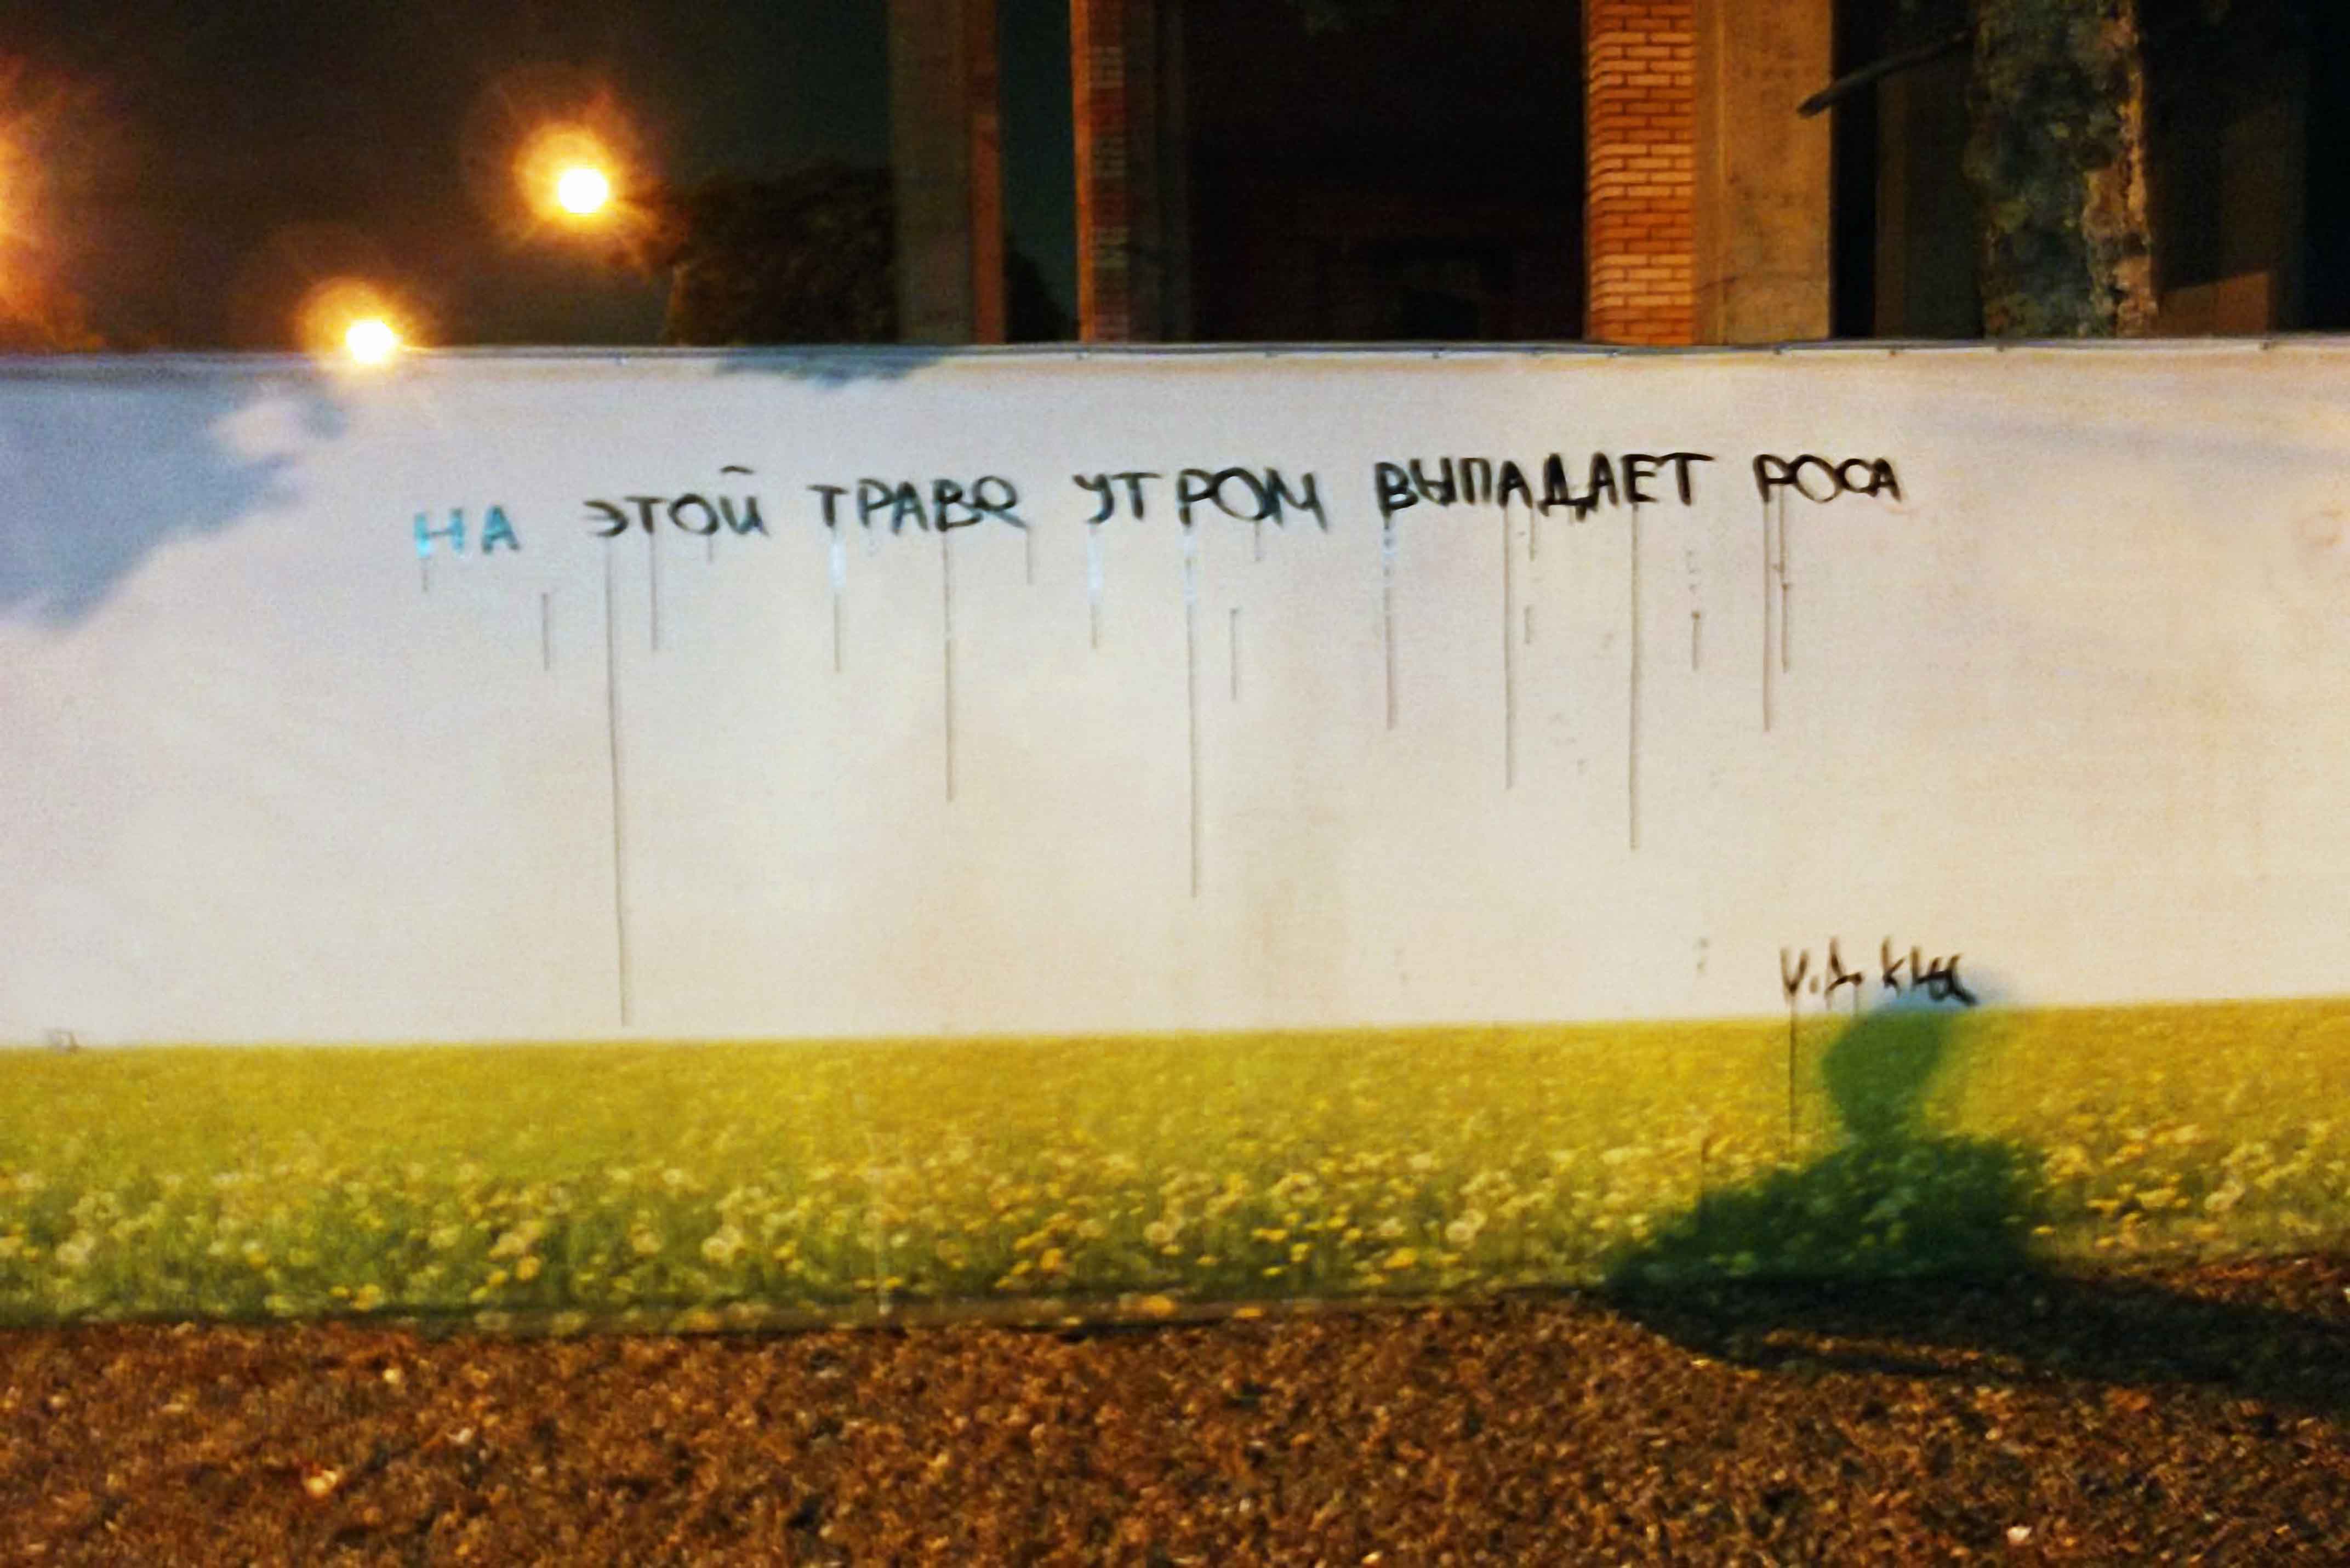 НА ЭТОЙ ТРАВЕ УТРОМ ВЫПАДАЕТ РОСА